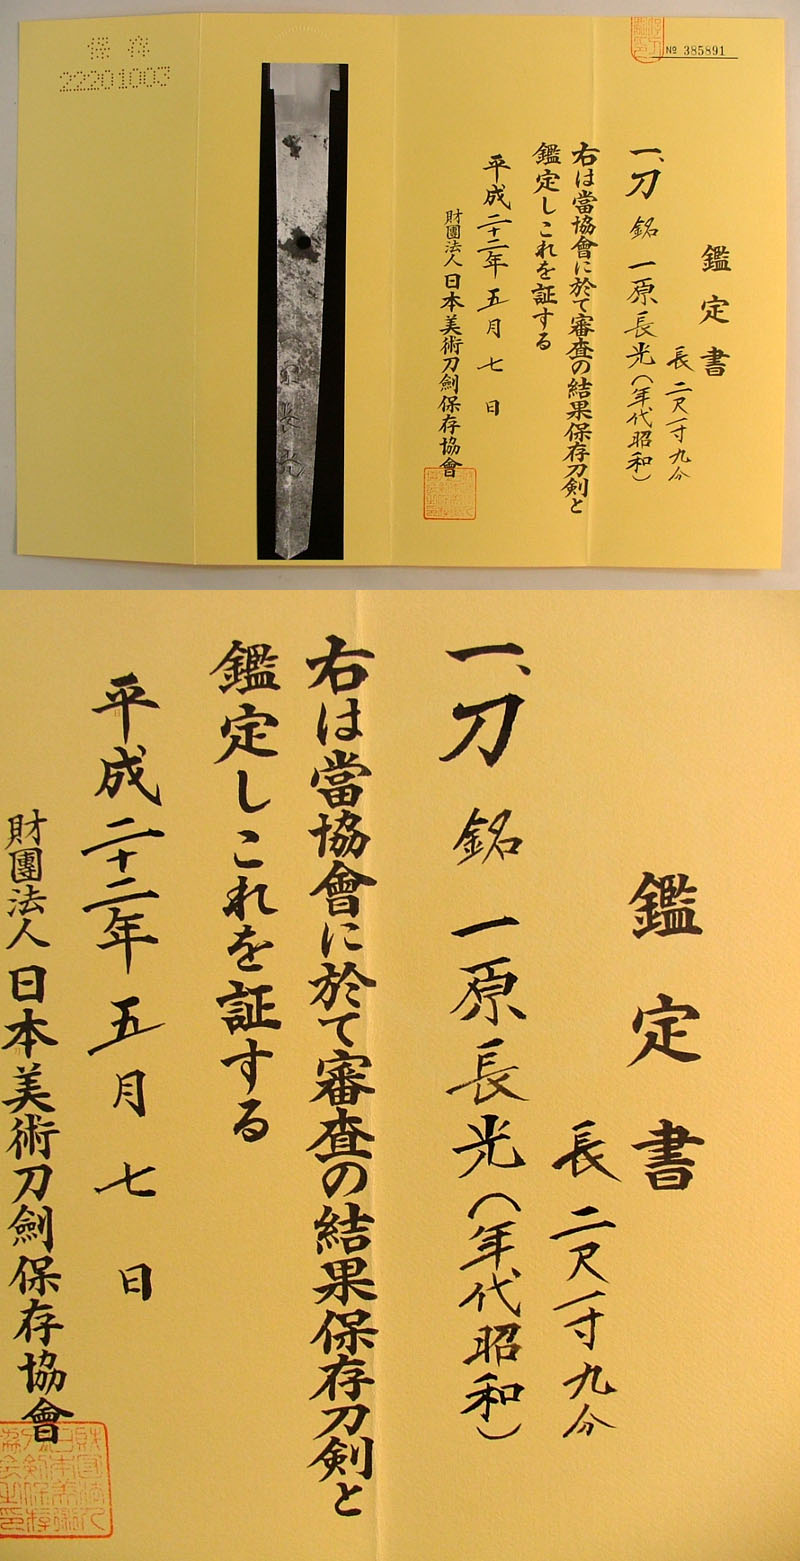 保存
22201003
№ 385891
鑑定書
長 二尺一寸九分
一、刀 銘 一原長光(年代昭和)
右は當協會に於て審査の結果保存刀剣と
鑑定しこれを証する
平成二十二年五月七日
財團法人日本美術刀劍保存協會
長光
鑑定書
長 二尺一寸九分
一、刀 銘 一原長光(年代昭和)
右は當協會に於て審査の結果保存刀剣と
鑑定しこれを証する
平成二十二年五月七日
財團法人日本美術刀劍保存協會